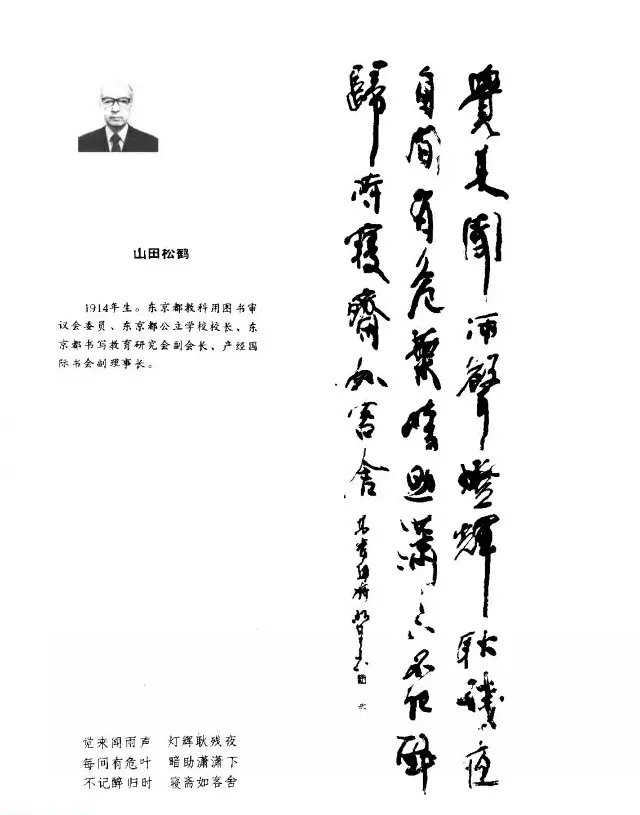 山田松鹤
1914年生。东京都教科用图书审
议会委员、东京都公立学校校长、东
京都书写教育研究会副会长、产经国
际书会副理事长。
覺来聞雨聲燈輝耿殘夜
間有危葉暗助瀟々下不記醉
歸時寝齋如客舍
觉来闻雨声 灯辉耿残夜
每间有危叶 暗助潇潇下
不记醉归时 寝斋如客舍